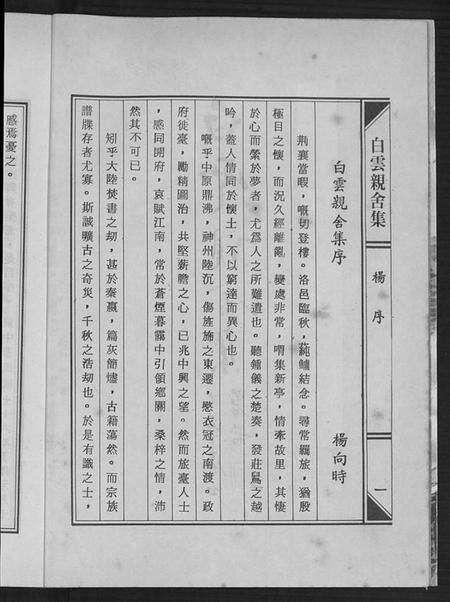 白雲親舍集
楊序
一
白雲親舍集序
楊向時
荆襄當暇，嘅切登樓。洛邑臨秋，蒓鱸結念。尋常羈旅，猶殷
極目之懷，而況久經離亂，變處非常，唶集新亭，情牽故里，其悽
於心而縈於夢者，尤爲人之所難遣也。聽鍾儀之楚奏，發莊舄之越
吟，蓋人情同於懷土，不以窮達而異心也。
嘅乎中原鼎沸，神州陸沉，傷旌旆之東遷，愍衣冠之南渡。政
府徙臺，勵精圖治，共堅薪膽之心，已兆中興之望。然而旅臺人士
，感同開府，哀賦江南，常於蒼煙暮靄中引領鄉關，桑梓之情，沛
然其不可已。
矧乎大陸焚書之劫，甚於秦嬴，篇灰簡燼，古籍蕩然。而宗族
譜牒存者尤寡。斯誠曠古之奇災，千秋之浩劫也。於是有識之士，
感焉憂之。